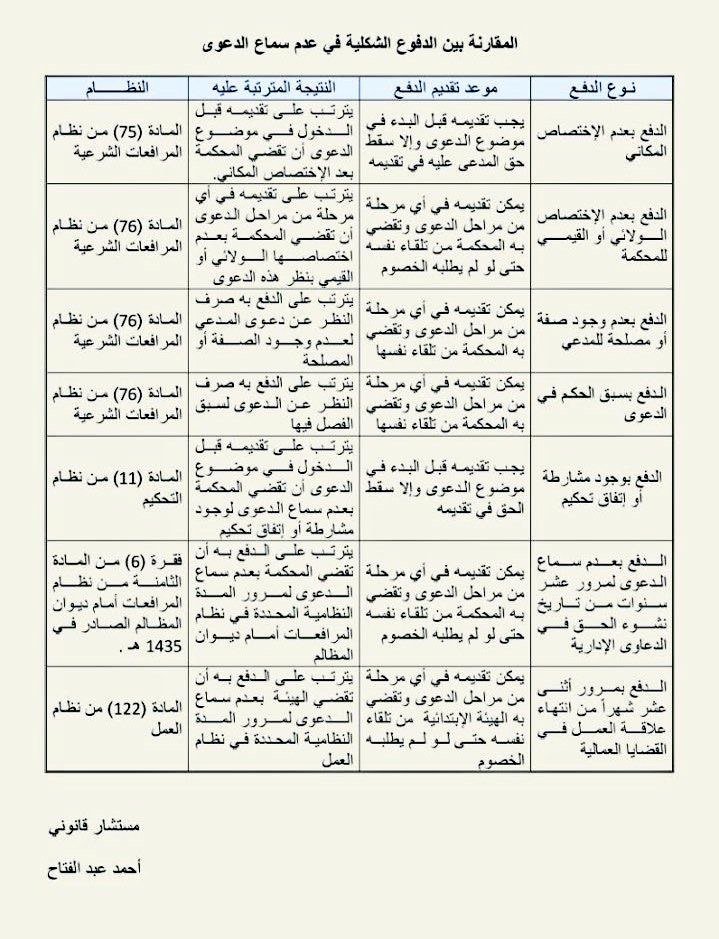 المقارنة بين الدفوع الشكلية في عدم سماع الدعوى
نوع الدفع
موعد تقديم الدفع
النتيجة المترتبة عليه
النظام
الدفع بعدم الإختصاص
المكاني
يجب تقديمه قبل البدء في
موضوع الدعوى وإلا سقط
حق المدعى عليه في تقديمه
يترتب على تقديمه قبل
الدخول في موضوع
الدعوى أن تقضي المحكمة
بعد الإختصاص المكاني.
المادة (75) من نظام
المرافعات الشرعية
الدفع بعدم الإختصاص
الولائي أو القيمي
للمحكمة
يمكن تقديمه في أي مرحلة
من مراحل الدعوى وتقضي
به المحكمة من تلقاء نفسه
حتى لو لم يطلبه الخصوم
يترتب على تقديمه في أي
مرحلة من مراحل الدعوى
أن تقضي المحكمة بعدم
اختصاصها الولائي أو
القيمي بنظر هذه الدعوى
المادة (76) من نظام
المرافعات الشرعية
الدفع بعدم وجود صفة
أو مصلحة للمدعي
يمكن تقديمه في أي مرحلة
من مراحل الدعوى وتقضي
به المحكمة من تلقاء نفسها
يترتب على الدفع به صرف
النظر عن دعوى المدعي
لعدم وجود الصفة أو
المصلحة
المادة (76) من نظام
المرافعات الشرعية
الدفع بسبق الحكم في
الدعوى
يمكن تقديمه في أي مرحلة
من مراحل الدعوى وتقضي
به المحكمة من تلقاء نفسها
يترتب على الدفع به صرف
النظر عن الدعوى لسبق
الفصل فيها
المادة (76) من نظام
المرافعات الشرعية
الدفع بوجود مشارطة
أو إتفاق تحكيم
يجب تقديمه قبل البدء في
موضوع الدعوى وإلا سقط
الحق في تقديمه
يترتب على تقديمه قبل
الدخول في موضوع
الدعوى أن تقضي المحكمة
بعدم سماع الدعوى لوجود
مشارطة أو إتفاق تحكيم
المادة (11) من نظام
التحكيم
الدفع بعدم سماع
الدعوى لمرور عشر
سنوات من تاريخ
نشوء الحق في
الدعاوى الإدارية
يمكن تقديمه في أي مرحلة
من مراحل الدعوى وتقضي
به المحكمة من تلقاء نفسه
حتى لو لم يطلبه الخصوم
يترتب على الدفع به أن
تقضي المحكمة بعدم سماع
الدعوى لمرور المدة
النظامية المحددة في نظام
المرافعات أمام ديوان
المظالم
فقرة (6) من المادة
الثامنة من نظام
المرافعات أمام ديوان
المظالم الصادر في
1435 هـ .
الدفع بمرور أثنى
عشر شهراً من انتهاء
علاقة العمل في
القضايا العمالية
يمكن تقديمه في أي مرحلة
من مراحل الدعوى وتقضي
به الهيئة الإبتدائية من تلقاء
نفسه حتى لو لم يطلبه
الخصوم
يترتب على الدفع به أن
تقضي الهيئة بعدم سماع
الدعوى لمرور المدة
النظامية المحددة في نظام
العمل
المادة (122) من نظام
العمل
مستشار قانوني
أحمد عبد الفتاح